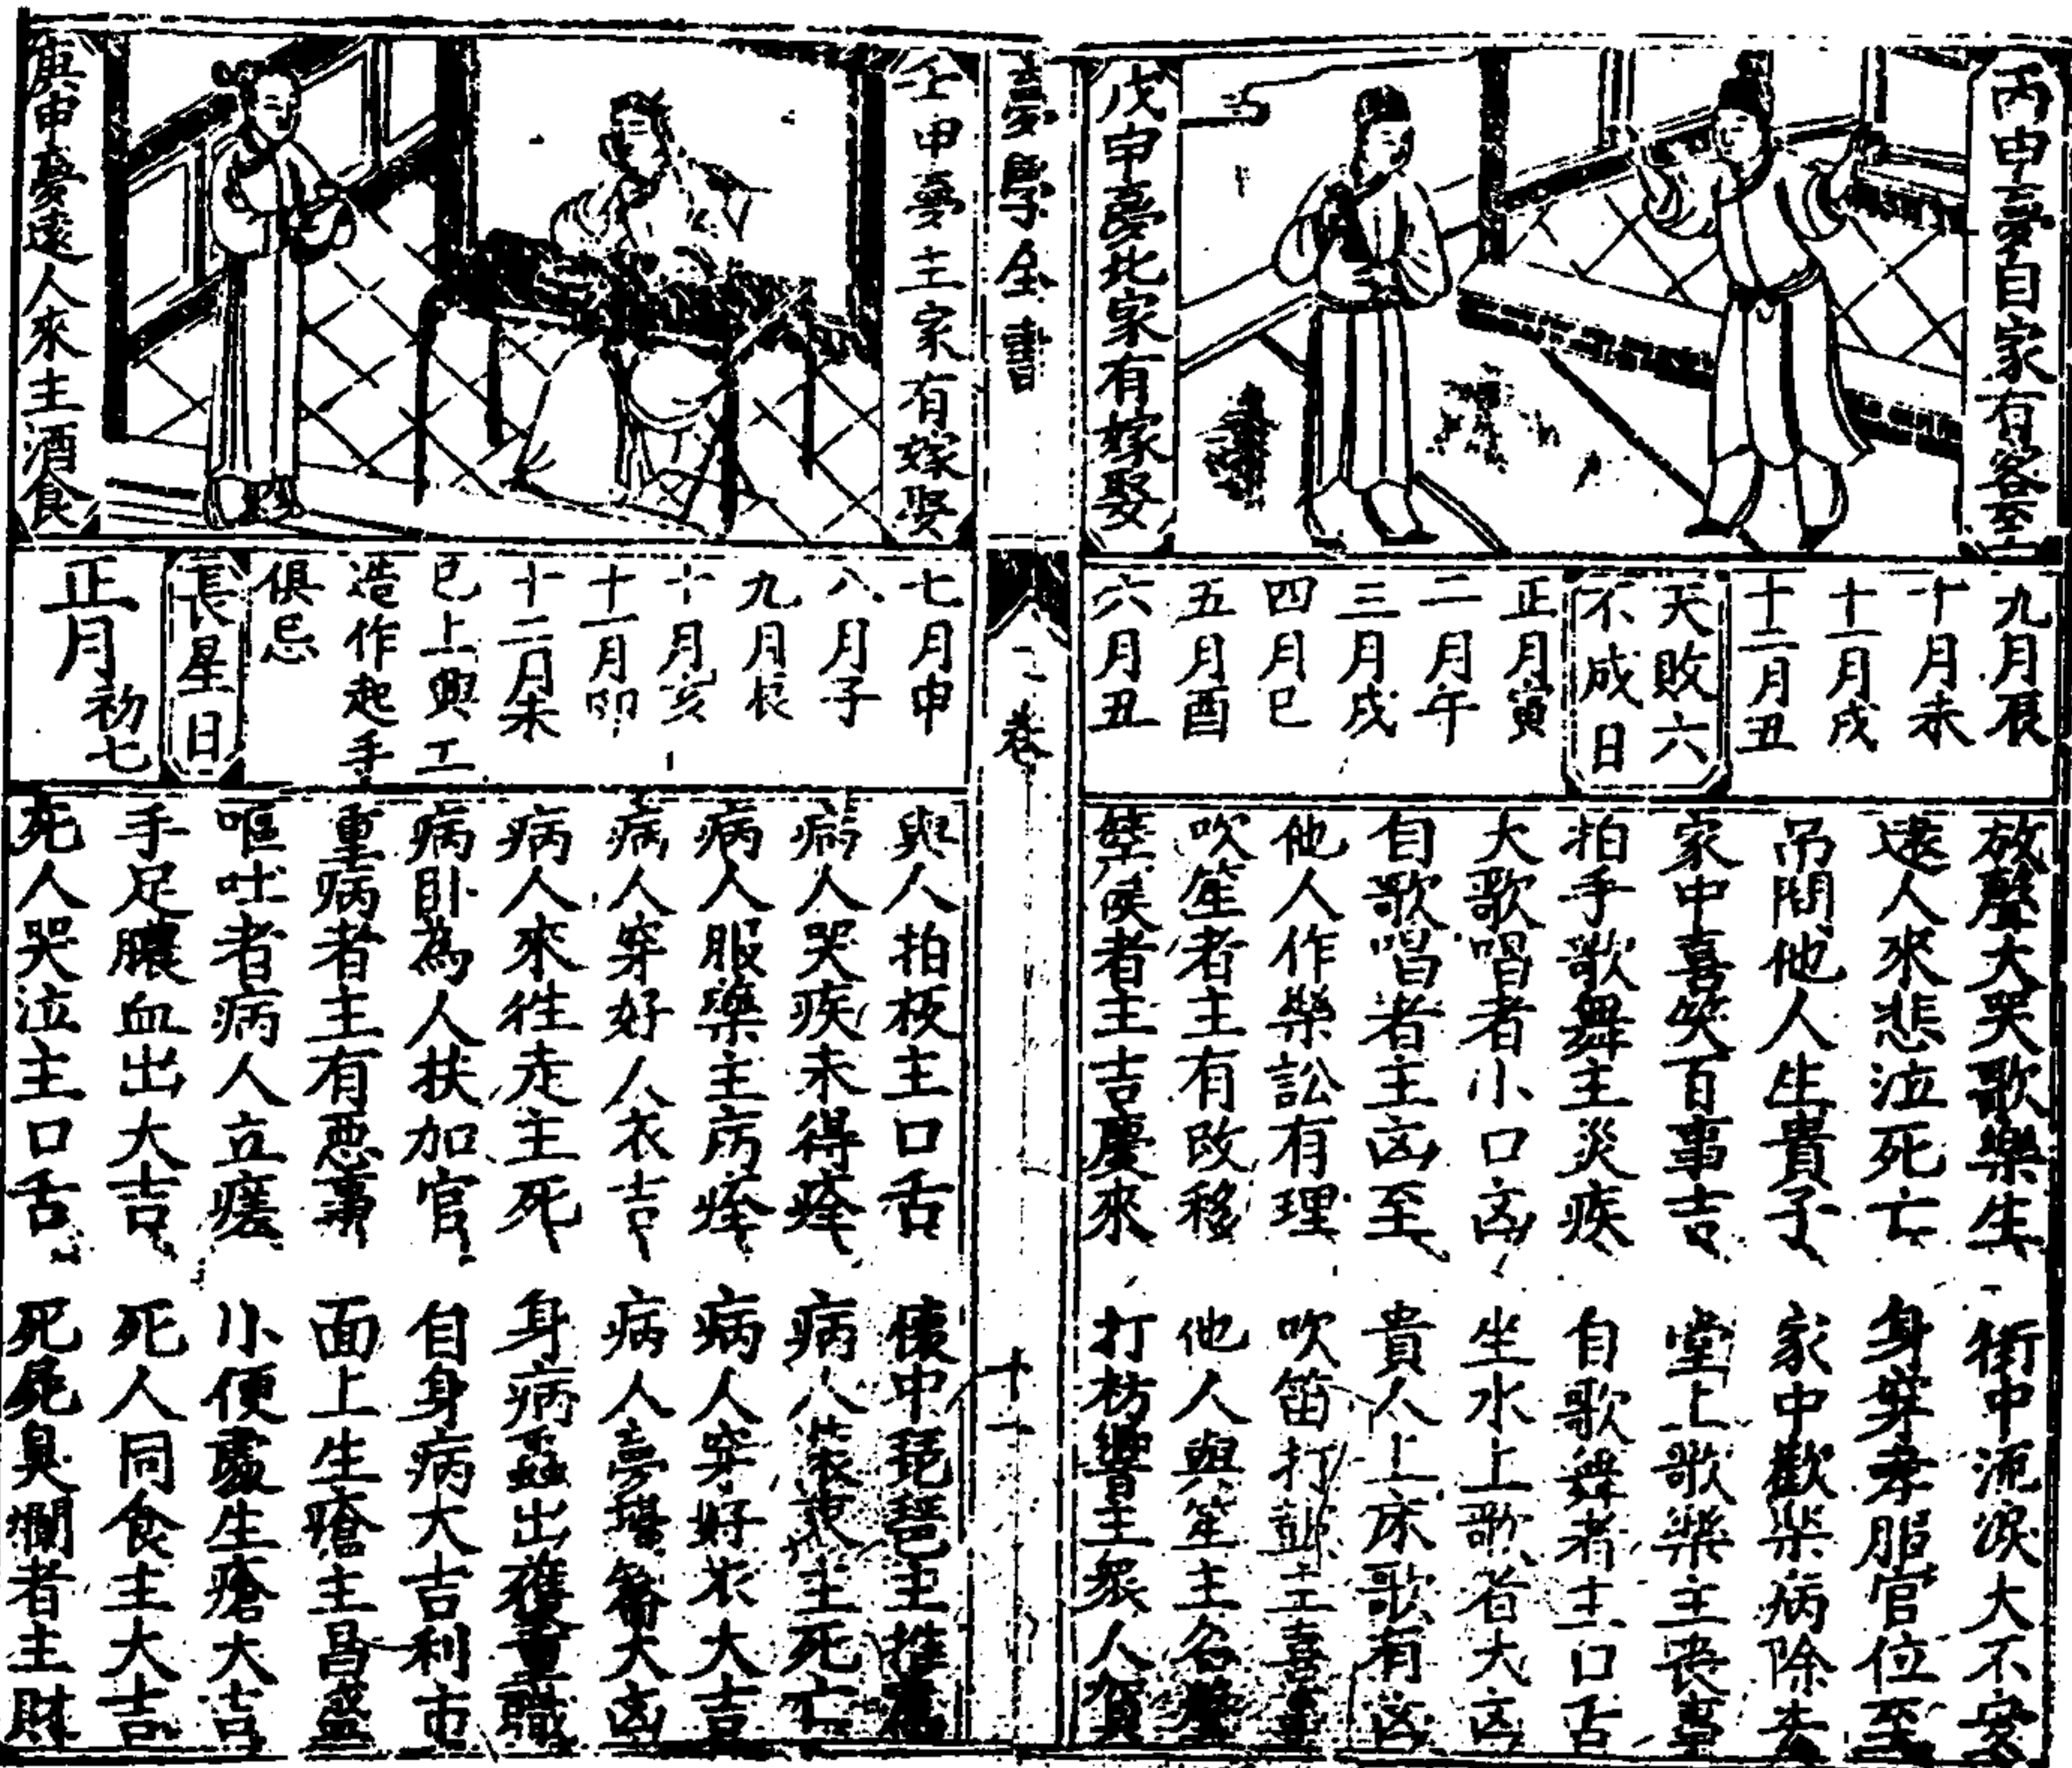 丙申夢自家有客至
戊申夢北家有嫁娶
九月辰
十月未
十一月戌
十二月丑
天敗六
不成日
正月寅
二月午
三月戌
四月巳
五月酉
六月丑
放聲大哭歌樂生
街中流淚大不安
遠人來悲泣死亡
身穿孝服官位至
吊問他人生貴子
家中歡樂病除去
家中喜笑百事吉
堂上歌樂主喪事
拍手歌舞主災疾
自歌舞者主口舌
大歌唱者小口凶
坐水上歌者大凶
自歌唱者主凶至
貴人上床歌有凶
他人作樂訟有理
吹笛打鼓主喜事
吹笙者主有改移
他人與笙主名聲
箜篌者主吉慶來
打枋響主眾人賀
夢學全書
二卷
十二
壬申夢主家有嫁娶
庚申夢遠人來主酒食
七月申
八月子
九月辰
十月亥
十一月卯
十二月未
已上興工
造作起手
俱忌
長星日
正月初七
與人拍板主口舌
懷中琵琶主推薦
病人哭疾未得痊
病人裝束主死亡
病人服藥主病痊
病人穿好衣大吉
病人穿好人衣吉
病人夢墳墓大凶
病人來往走主死
身病蟲出獲重職
病卧為人扶加官
自身病大吉利市
重病者主有惡事
面上生瘡主昌盛
嘔吐者病人立瘥
小便處生瘡大吉
手足膿血出大吉
死人同食主大吉
死人哭泣主口舌
死屍臭爛者主財